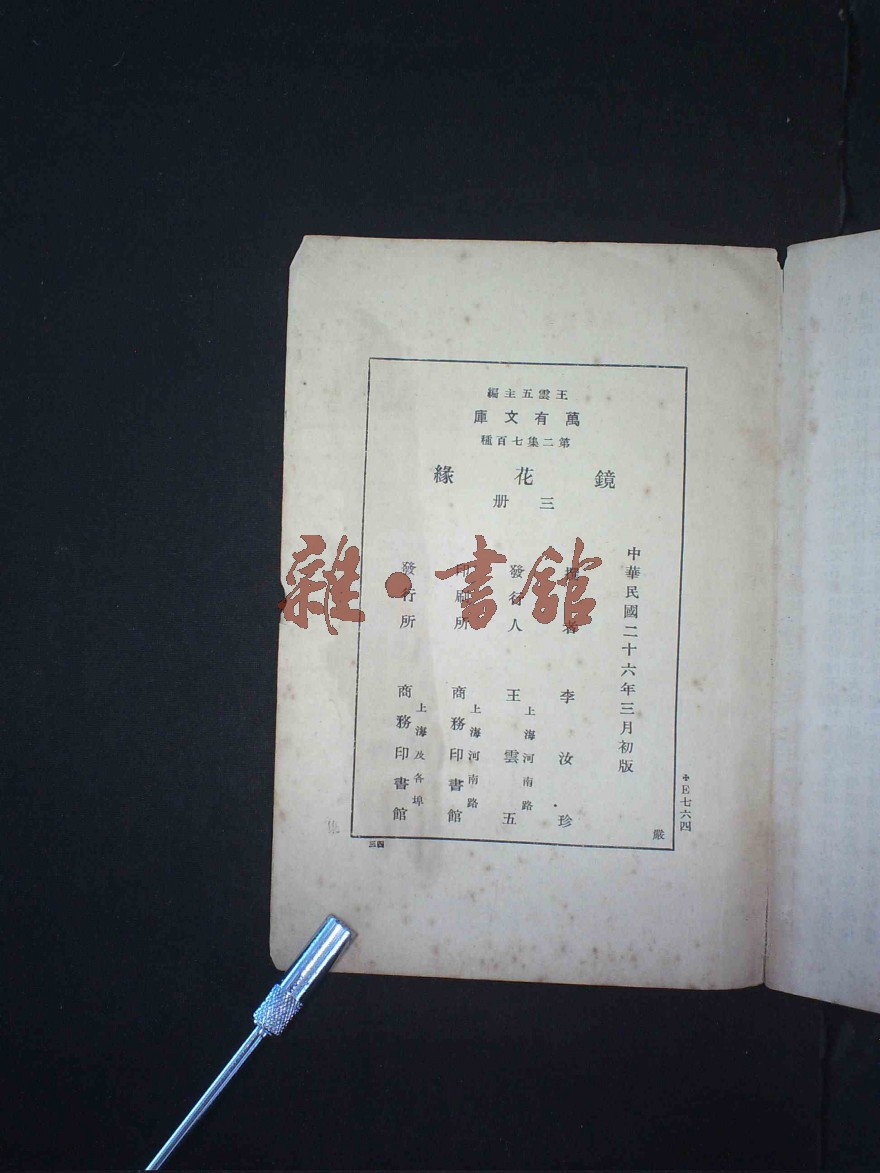 王雲五主編
萬有文庫
第二集七百種
鏡花緣
三册
中華民國二十六年三月初版
撰者 李汝珍
發行人 王雲五
上海河南路
印刷所 商務印書館
上海河南路
發行所 商務印書館
上海及各埠
✠E七六四
嚴
雜·書館